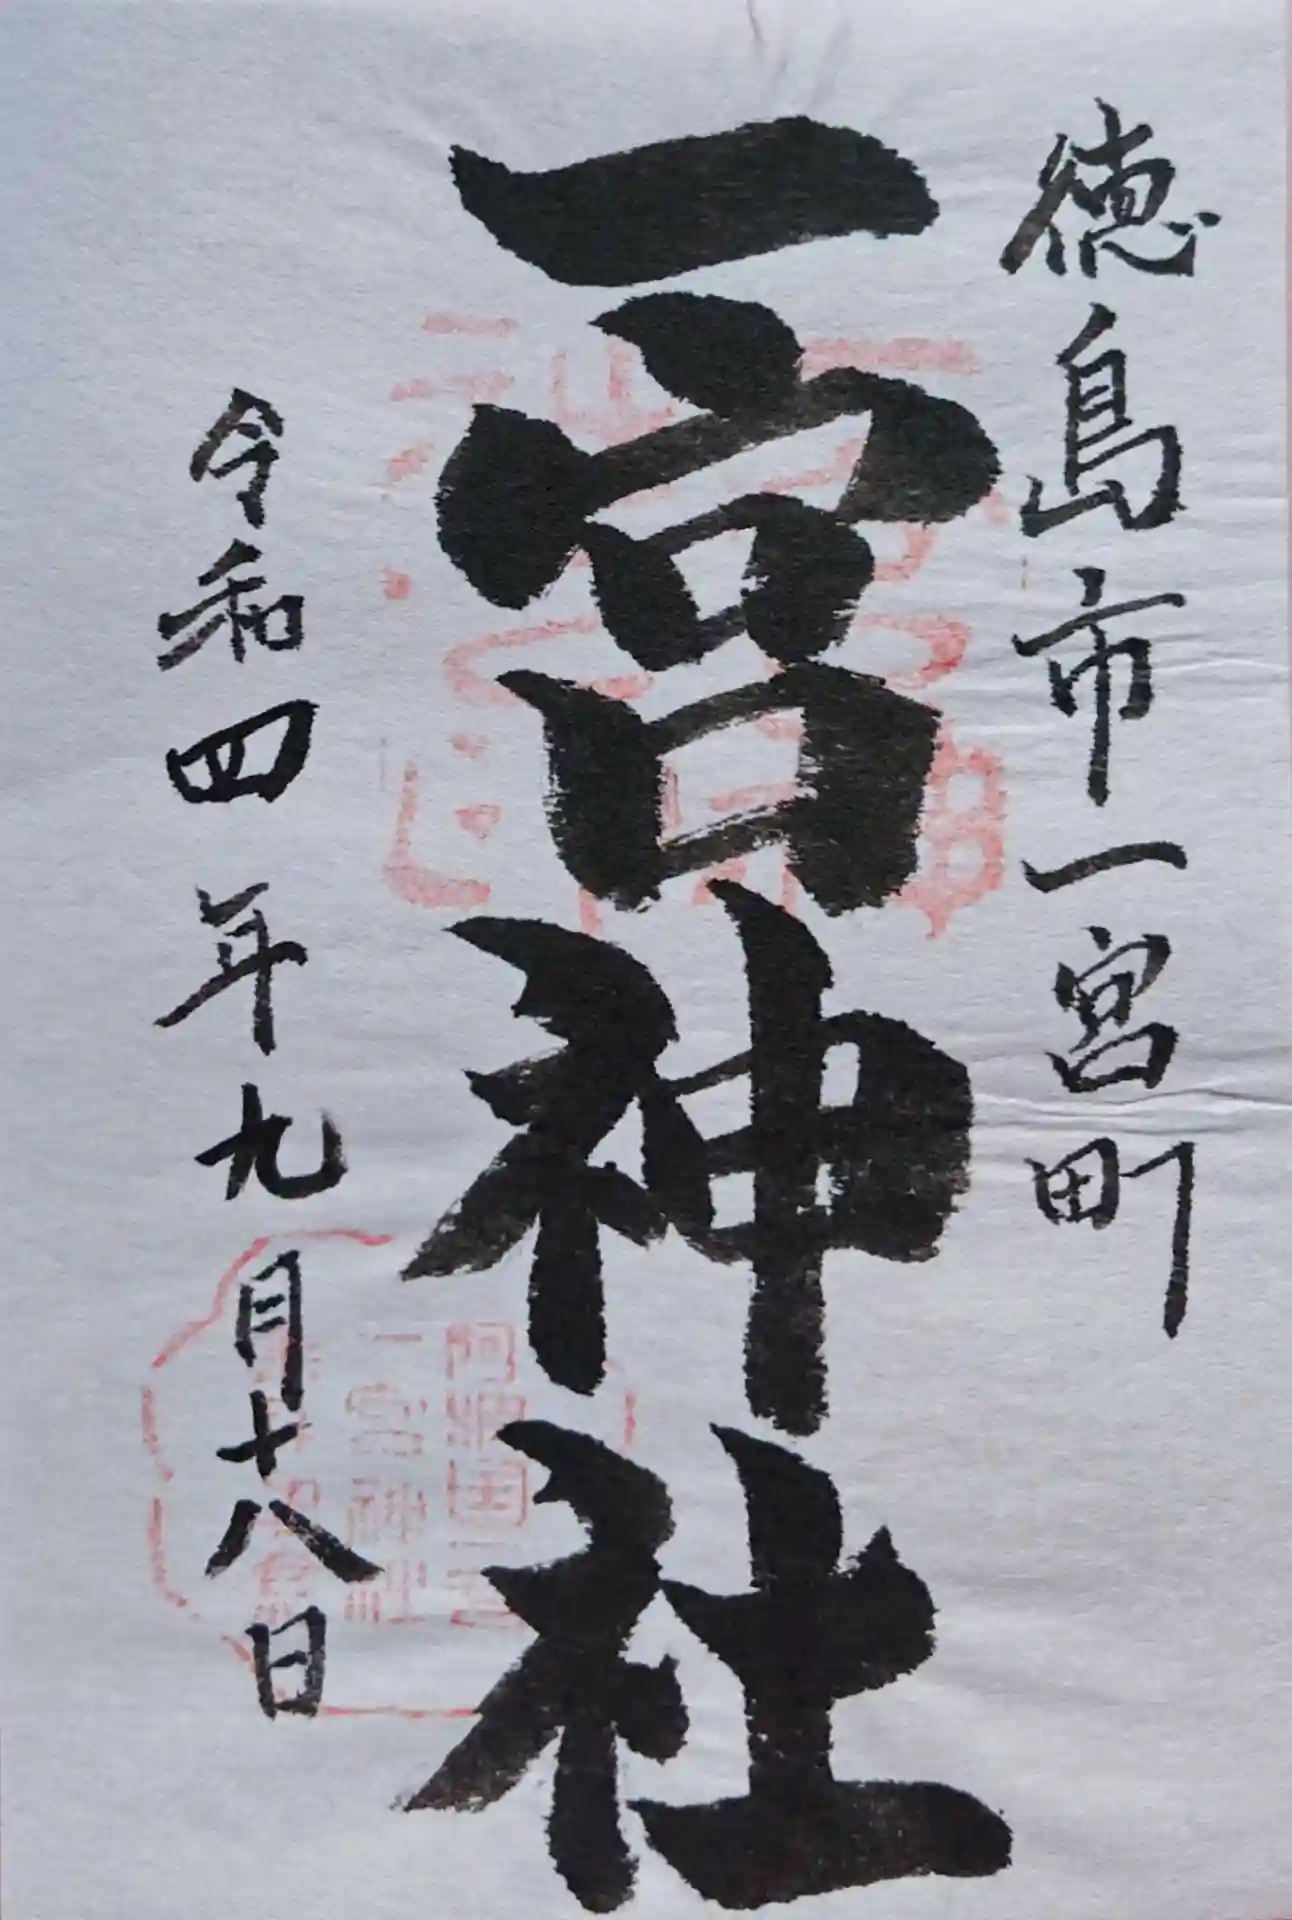 徳島市一宮町
一宮神社
令和四年九月十八日
一宮神社